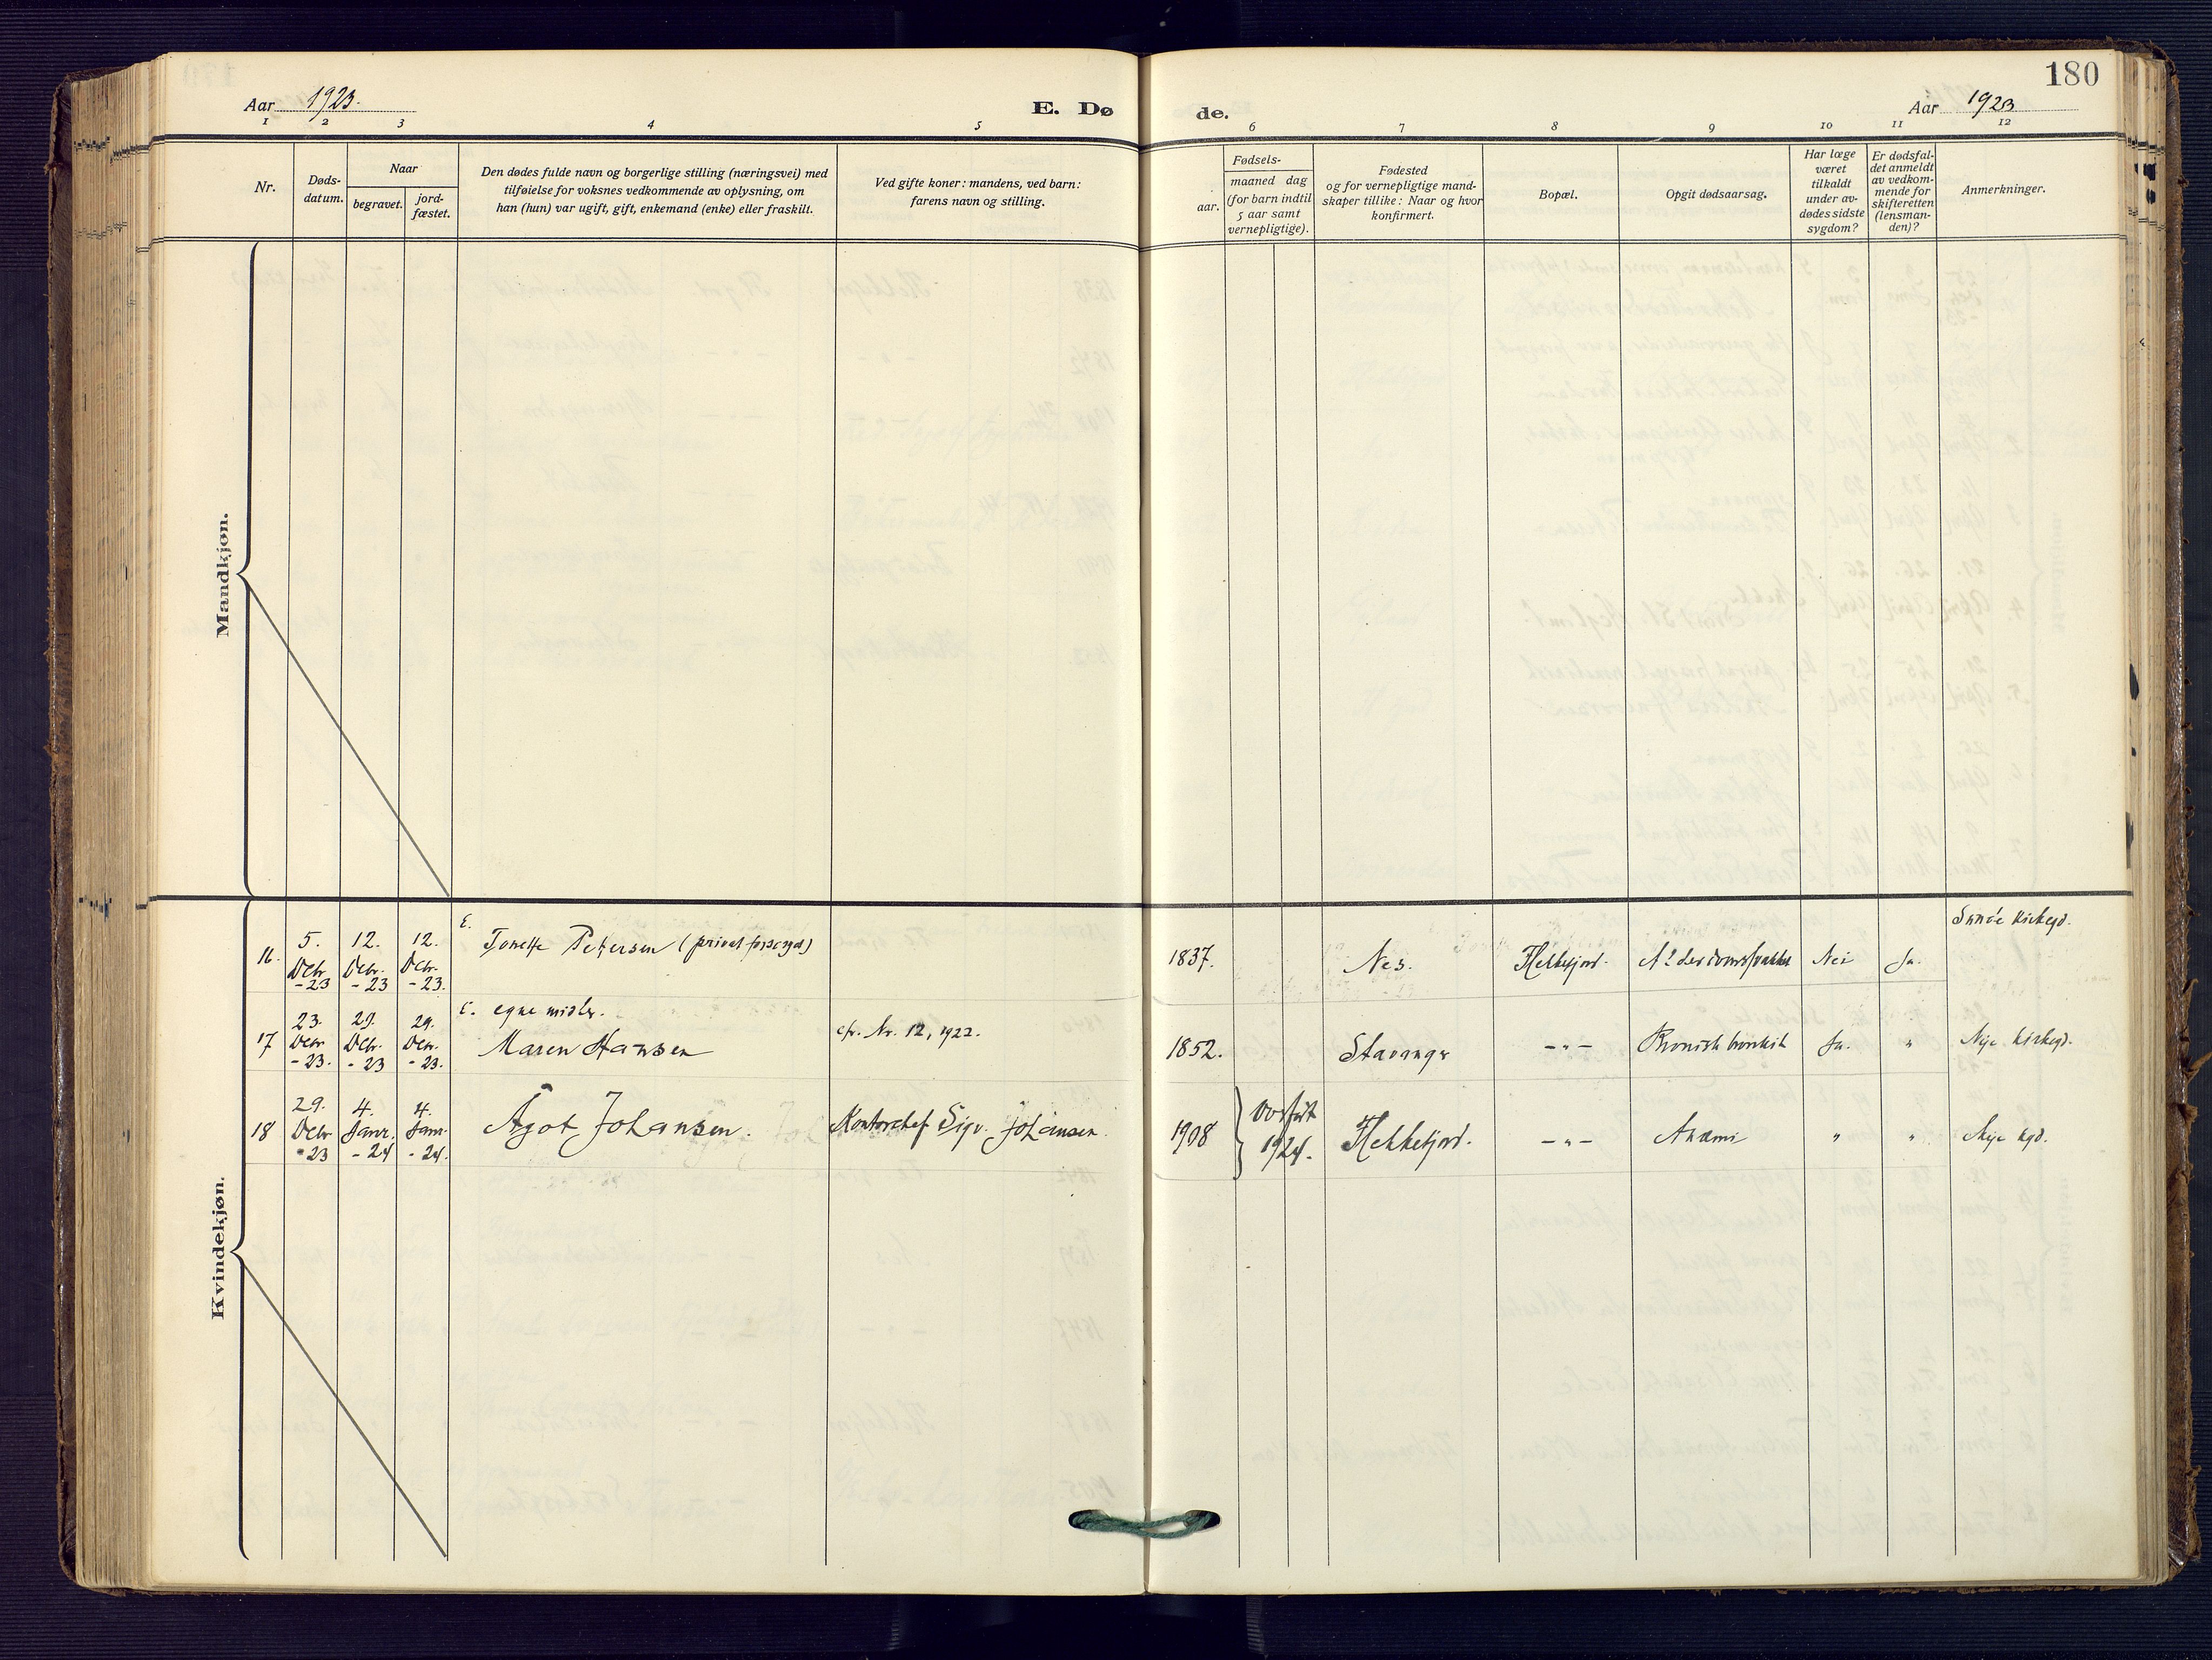 180
Aar 1923.
E. Døde.
Aar 1923
1 2 3 4 5 6 7 8 9 10 11 12
Nr.
Døds-
datum.
Naar
begravet.
jord-
fæstet.
Den dødes fulde navn og borgerlige stilling (næringsvei) med
tilføielse for voksnes vedkommende av oplysning, om
han (hun) var ugift, gift, enkemand (enke) eller fraskilt.
Ved gifte koner: mandens, ved barn:
farens navn og stilling.
Fødsels-
aar.
maaned dag
(for barn indtil
5 aar samt
vernepligtige).
Fødested
og for vernepligtige mand-
skaper tillike: Naar og hvor
konfirmert.
Bopæl.
Opgit dødsaarsag.
Har læge
været
tilkaldt
under av-
dødes sidste
sygdom?
Er dødsfal-
det anmeldt
av vedkom-
mende for
skifteretten
(lensman-
den)?
Anmerkninger.
Mandkjøn.
Kvindekjøn.
16. 5. Debr -23 12. Debr. -23 12. Debr. -23. E. Tonette Petersen (privat forsørget) 1837. Nes. Flekkefjord. Alderdomssvakket Nei Ja. Sunde kirkegd.
17 23. Debr -23. 29. Debr. -23 29. Debr. -23. E. egne midler.
Maren Hansen cfr. Nr. 12, 1922. 1852. Stavanger -"- Kronisk bronkit Ja. " Nye kirkegd.
18 29. Debr -23 4. Janr. -24 4. Janr. -24. Ågot Johansen. Kontorchef Sigv. Johansen. 1908 1924. Flekkefjord. -"- Anæmi " " Nye kgd.